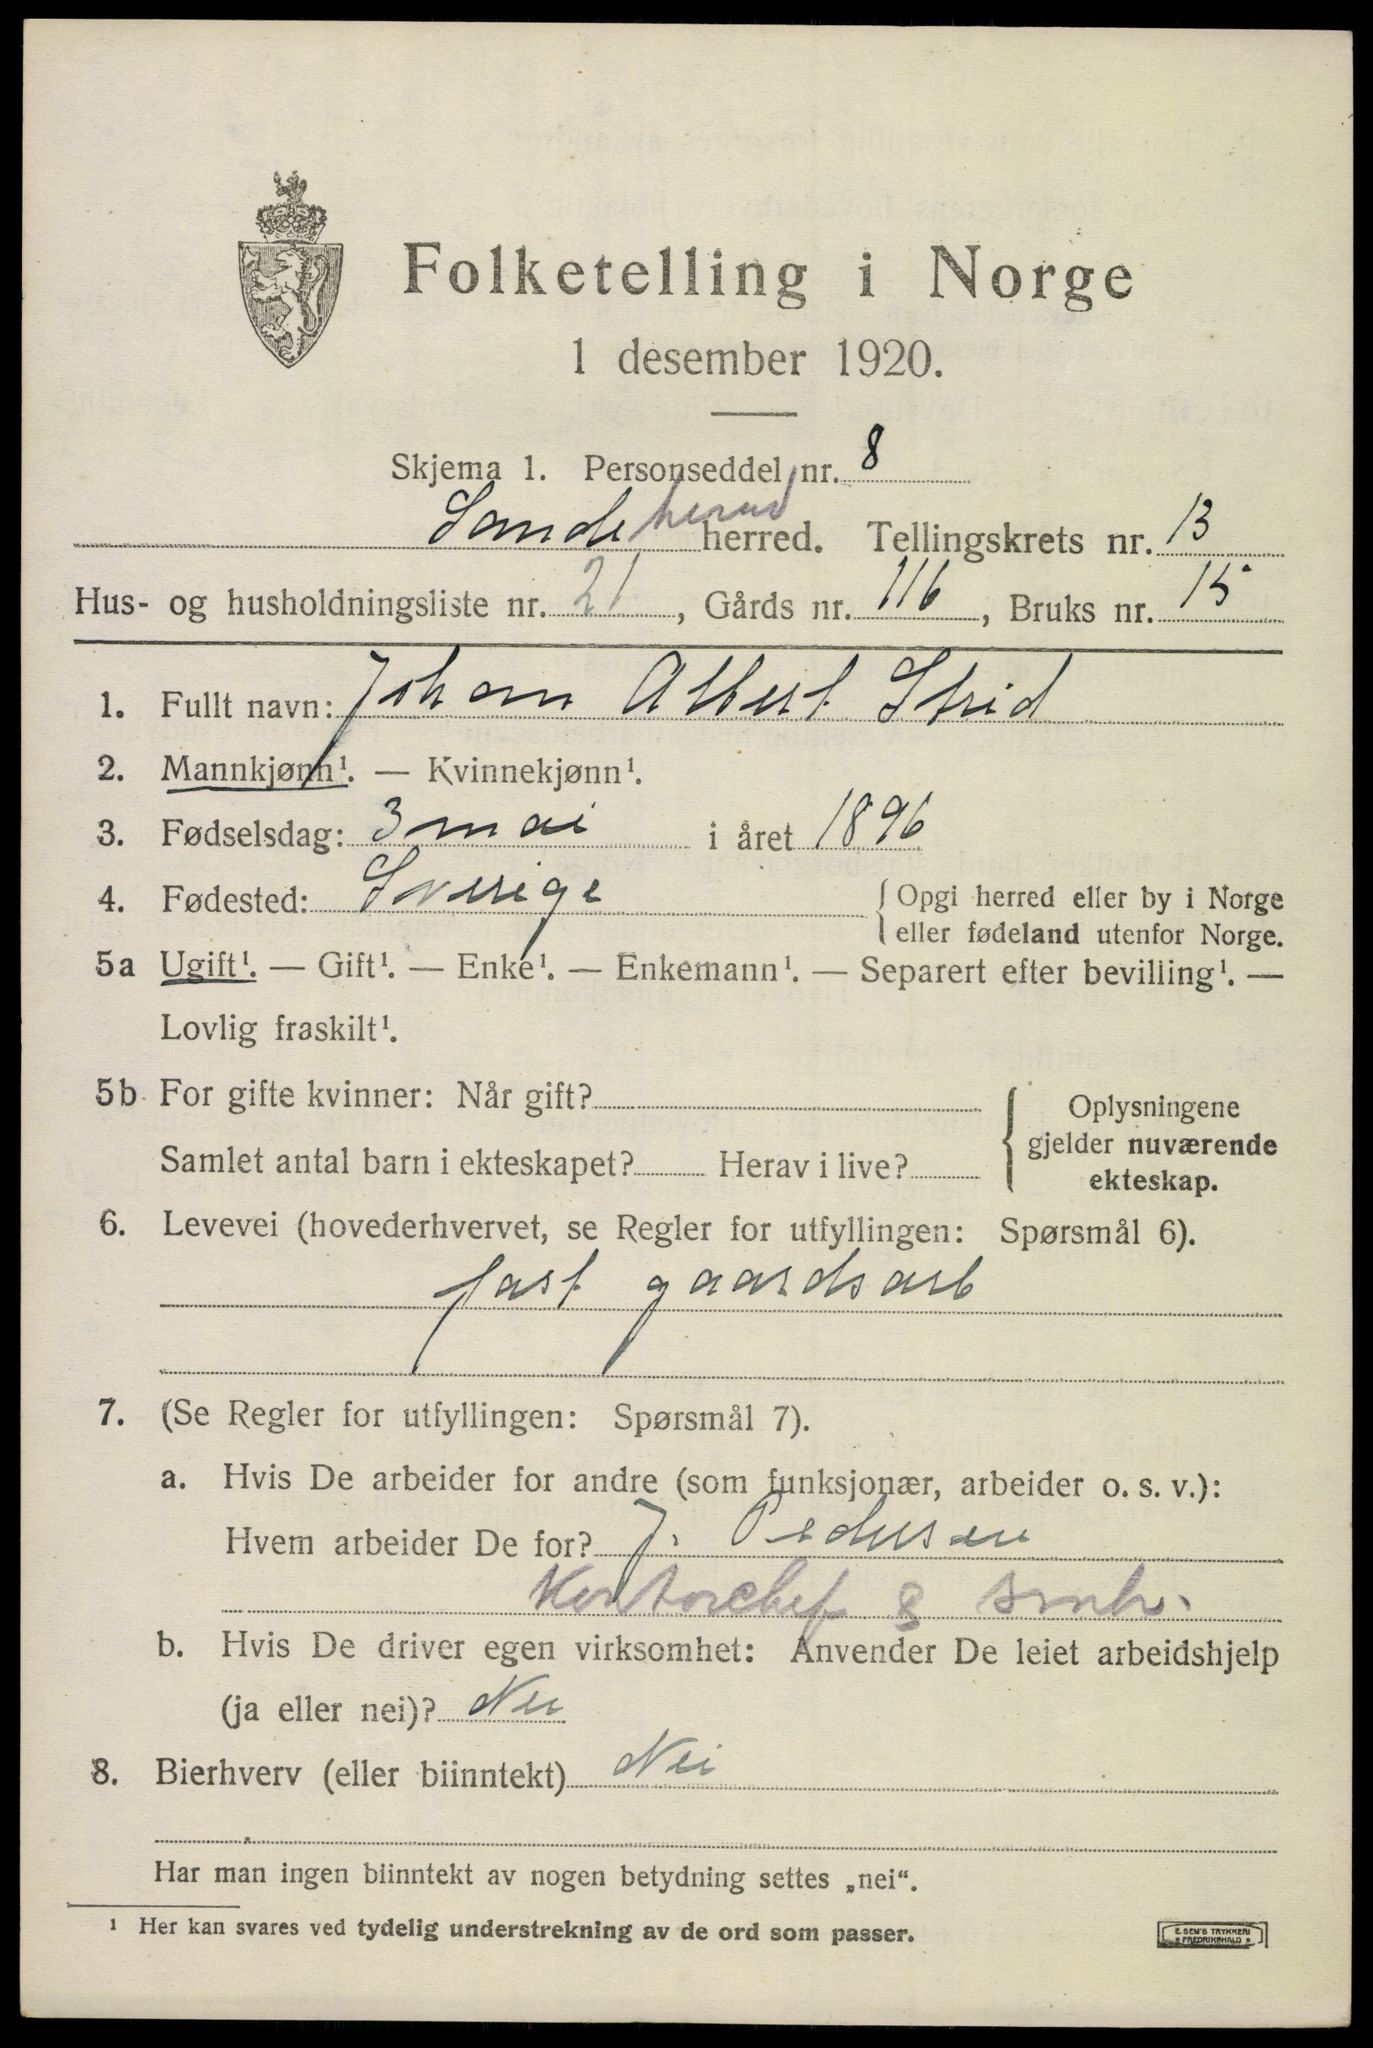 Folketelling i Norge
1 desember 1920.
Skjema 1. Personseddel nr. 8
Sandeherred herred. Tellingskrets nr. 13
Hus- og husholdningsliste nr. 21, Gårds nr. 116, Bruks nr. 15
1. Fullt navn: Johan Albert Strid
2. Mannkjønn¹. — Kvinnekjønn¹.
3. Fødselsdag: 3 mai i året 1896
4. Fødested: Sverige
{ Opgi herred eller by i Norge
eller fødeland utenfor Norge.
5a Ugift¹. — Gift¹. — Enke¹. — Enkemann¹. — Separert efter bevilling¹. —
Lovlig fraskilt¹.
5b For gifte kvinner: Når gift?
Samlet antal barn i ekteskapet? Herav i live?
{ Oplysningene
gjelder nuværende
ekteskap.
6. Levevei (hovederhvervet, se Regler for utfyllingen: Spørsmål 6).
fast gaardsarb
7. (Se Regler for utfyllingen: Spørsmål 7).
a. Hvis De arbeider for andre (som funksjonær, arbeider o. s. v.):
Hvem arbeider De for? J. Pedersen
Kontorchef &
b. Hvis De driver egen virksomhet: Anvender De leiet arbeidshjelp
(ja eller nei)? Nei
8. Bierhverv (eller biinntekt) Nei
Har man ingen biinntekt av nogen betydning settes „nei“.
¹ Her kan svares ved tydelig understrekning av de ord som passer.
E. SEM'S TRYKKERI
FREDRIKSHALD